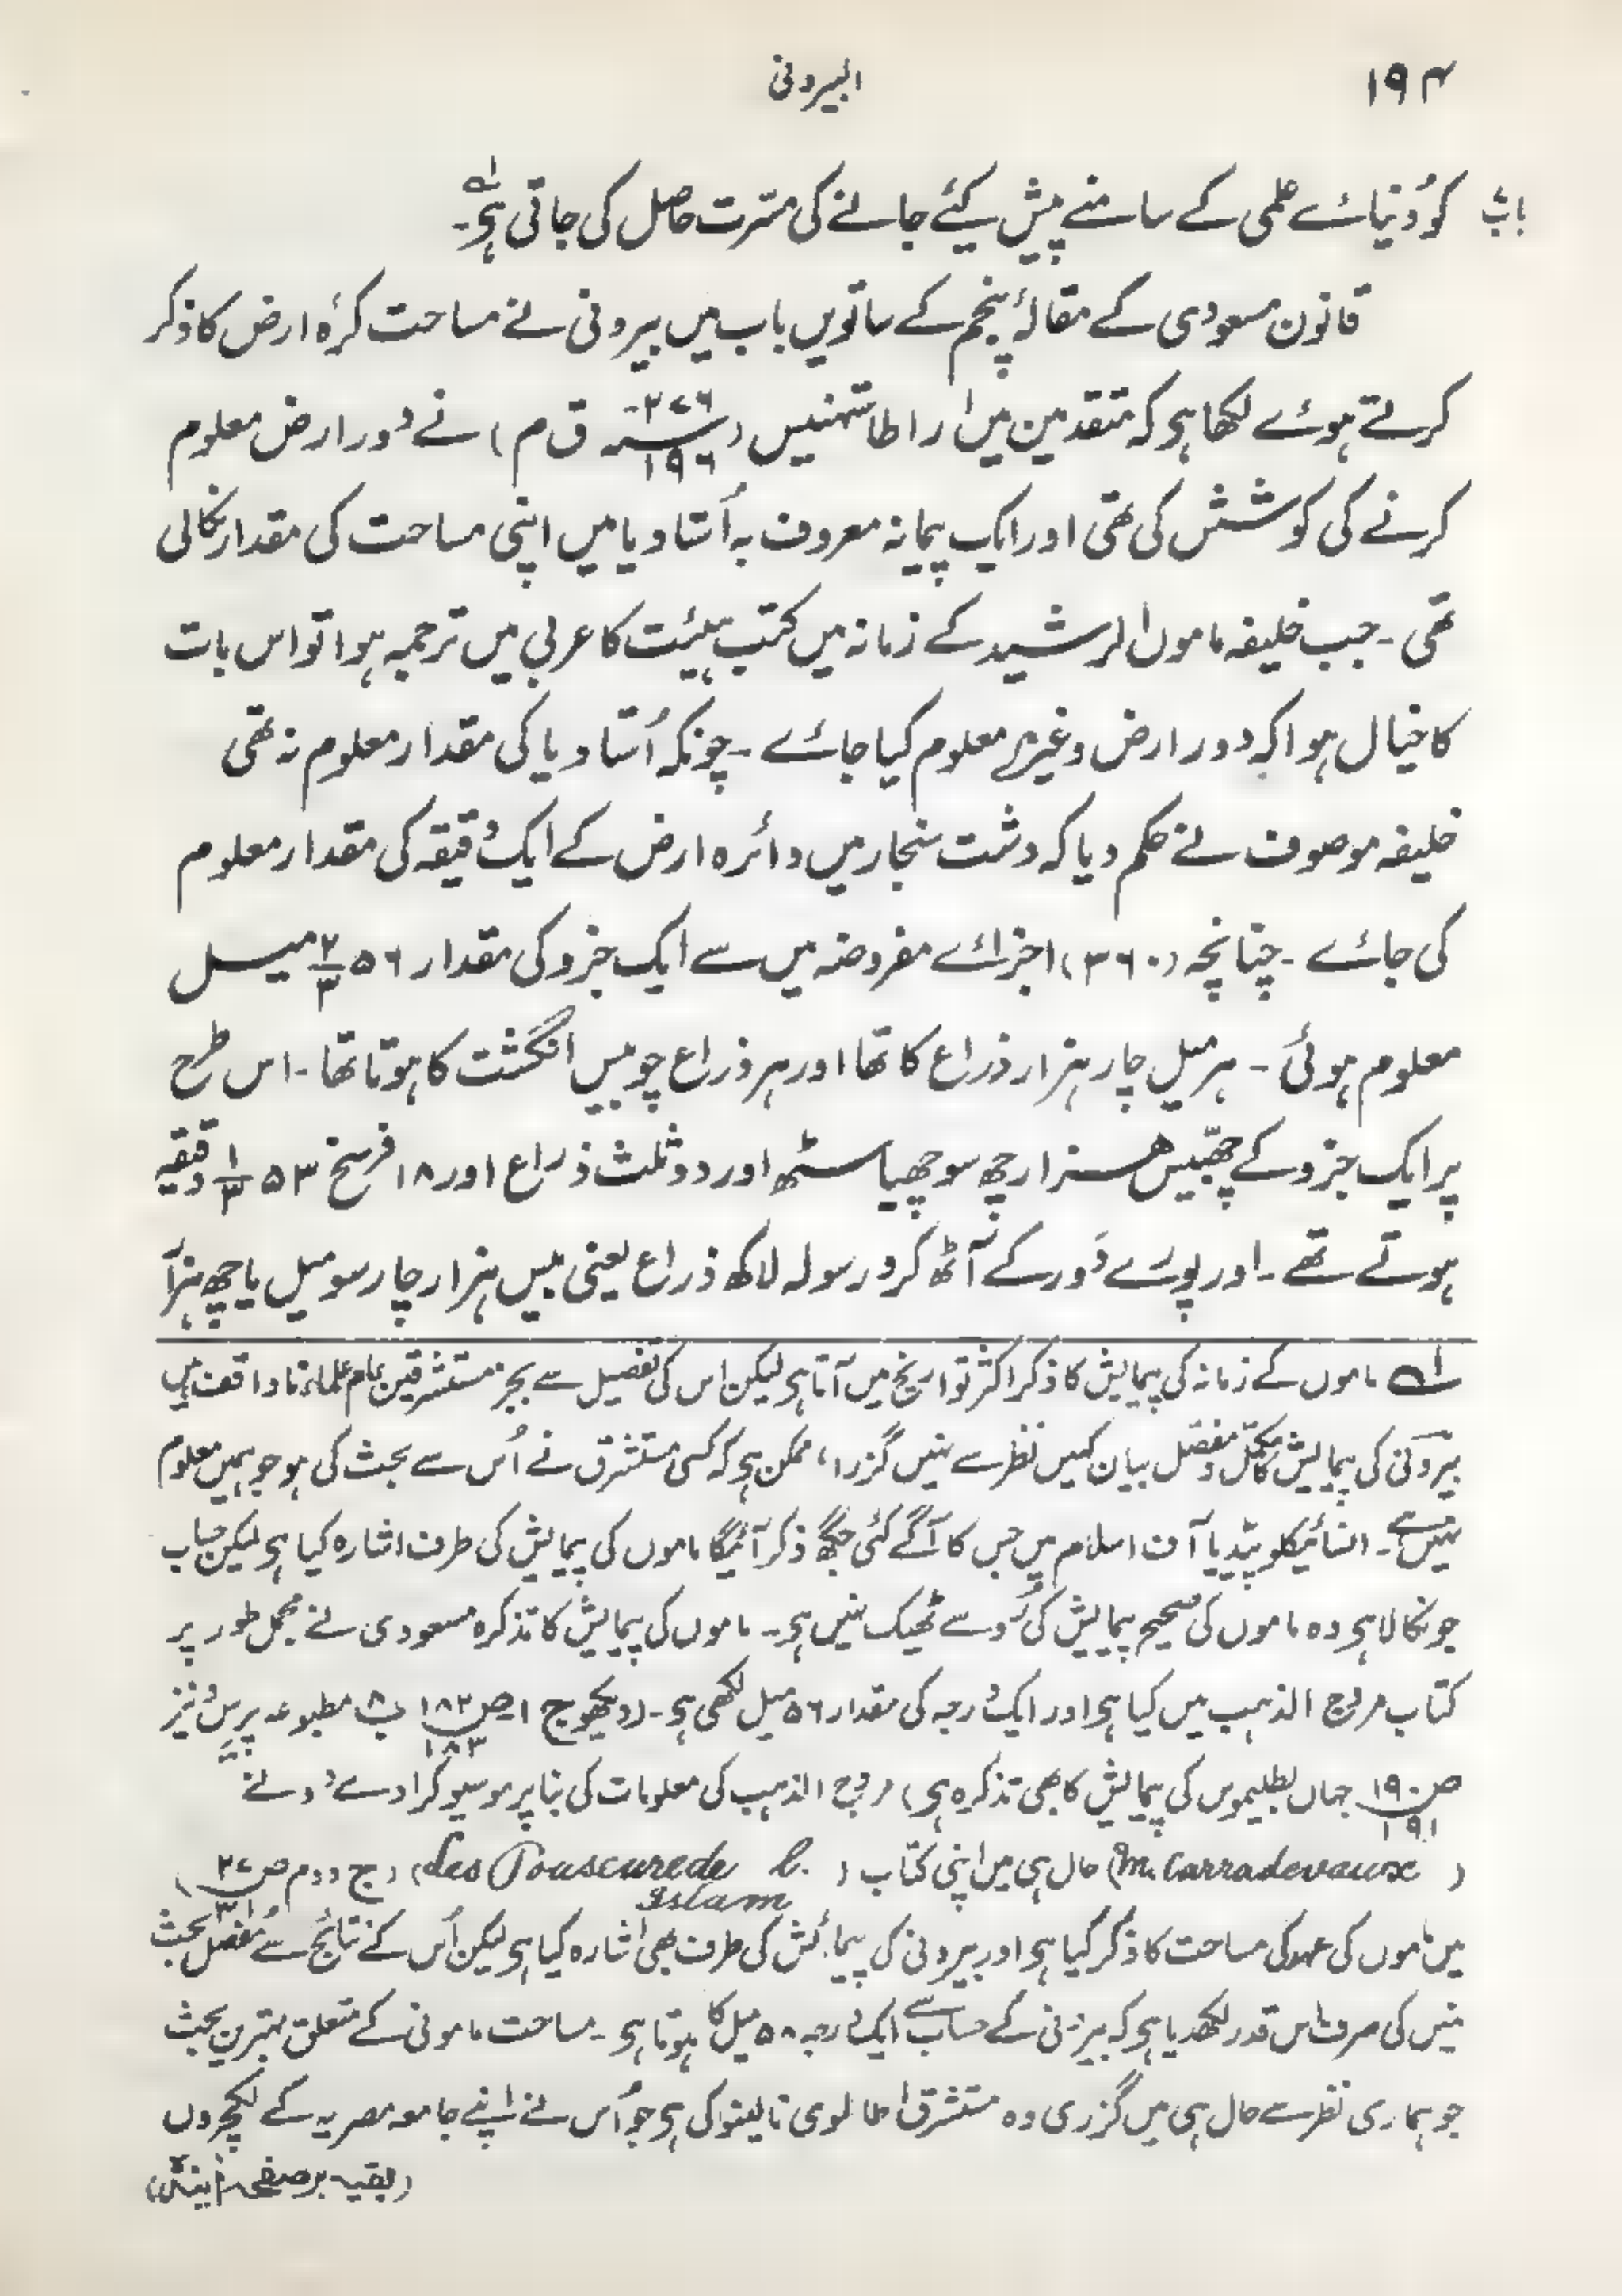 ۱۹۴
البیرونی
باب
کو دُنیائے علمی کے سامنے پیش کیئے جانے کی مسّرت حاصل کی جاتی ہی۔ لہ
قانون مسعودی کے مقالۂ پنجم کے ساتویں باب میں بیرونی نے مساحت کرۂ ارض کا ذکر
کرتے ہوئے لکھا ہی کہ متقدمین میں اراطاستہنیس (۲۷۶-۱۹۶ سنہ ق م) نے دور ارض معلوم
کرنے کی کوشش کی تھی اور ایک پیمانہ معروف بہ اُستادیا میں اپنی مساحت کی مقدار نکالی
تھی ۔ جب خلیفہ ماموں الرشید کے زمانہ میں کتب ہیئت کا عربی میں ترجمہ ہوا تو اس بات
کا خیال ہوا کہ دور ارض وغیرہ معلوم کیا جائے ۔ چونکہ اُستادیا کی مقدار معلوم نہ تھی
خلیفہ موصوف نے حکم دیا کہ دشت سنجار میں دائرہ ارض کے ایک دقیقہ کی مقدار معلوم
کی جائے ۔ چنانچہ (۳۶۰) اجزائے مفروضہ میں سے ایک جزو کی مقدار ۵۶ ۲/۳ میل
معلوم ہوئی ۔ ہر میل چار ہزار ذراع کا تھا اور ہر ذراع چوبیس انگشت کا ہوتا تھا ۔ اس طرح
پر ایک جزو کے چھبّیس ہزار چھ سو چھیاسٹھ اور دو ثلث ذراع اور ۱۸ فرسخ ۵۳ ۱/۳ دقیقہ
ہوتے تھے ۔ اور پورے دَور کے آٹھ کرور سولہ لاکھ ذراع یعنی بیس ہزار چار سو میل یا چھ ہزار
لہ ماموں کے زمانہ کی پیمایش کا ذکر اکثر تواریخ میں آتا ہی لیکن اس کی تفصیل سے بجز مستشرقین عام علماء نا واقف ہیں
بیرونی کی پیمایش کا مکمّل و مفصّل بیان کہیں نظر سے نہیں گزرا، ممکن ہی کہ کسی مستشرق نے اُس سے بحث کی ہو جو ہمیں معلوم
نہیں ہے ۔ انسائیکلوپیڈیا آف اسلام میں جس کا آگے کئی جگہ ذکر آئیگا ماموں کی پیمایش کی طرف اشارہ کیا ہی لیکن حساب
جو نکالا ہی وہ ماموں کی صحیح پیمایش کی رُو سے ٹھیک نہیں ہی ۔ ماموں کی پیمایش کا تذکرہ مسعودی نے مجمل طور پر
کتاب مروج الذہب میں کیا ہی اور ایک درجہ کی مقدار ۵۶ میل لکھی ہی ۔ (دیکھو ج ۱ ۔ ص ۱۸۲-۱۸۳ ب ۸ مطبوعہ پیرس نیز
ص ۱۹۰-۱۹۱ جہاں بطلیموس کی پیمایش کا بھی تذکرہ ہی) مروج الذہب کی معلومات کی بنا پر موسیو کرادے وو نے
(M. Carradevaux) حال ہی میں اپنی کتاب (Les Pouscurede l. Islam) (ج دوم ص ۲۷
میں ماموں کی عہد کی مساحت کا ذکر کیا ہی اور بیرونی کی پیمائش کی طرف بھی اشارہ کیا ہی لیکن اُس کے نتائج سے مفصل بحث
نہیں کی صرف اس قدر لکھدیا ہی کہ بیرونی کے حساب سے ایک درجہ ۵۸ میل کا ہوتا ہی ۔ مساحت مامونی کے متعلق بہترین بحث
جو ہماری نظر سے حال ہی میں گزری وہ مستشرق اطالوی نالینو کی ہی جو اُس نے اپنے جامعہ مصریہ کے لکچروں
(بقیہ بر صفحہ آیندہ)